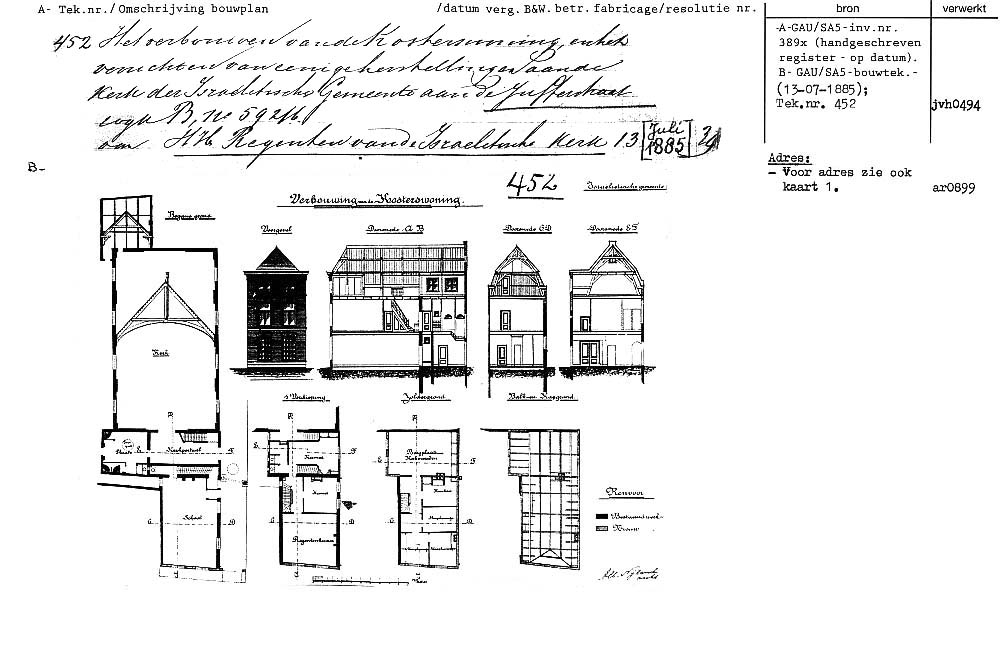 A- Tek.nr./Omschrijving bouwplan /datum verg. B&W. betr. fabricage/resolutie nr. bron verwerkt
452 Het verbouwen van de Kosterswoning, en het
verrichten van eenige herstellingen aan de
Kerk der Israelitische Gemeente aan de Jufferstraat
wijk B, No 592
om HH. Regenten van de Israelitische Kerk 13 [Juli 1885]
-A-GAU/SA5-inv.nr.
389x (handgeschreven
register - op datum).
B- GAU/SA5-bouwtek.-
(13-07-1885);
Tek.nr. 452
jvh0494
Adres:
- Voor adres zie ook
kaart 1.
ar0899
B-
452
Israelietische gemeente
Verbouwing van de Kosterswoning.
Begane grond
Voorgevel
Doorsnede A B
Doorsnede C D
Doorsnede E F
Kerk
1e Verdieping
Zoldergrond
Balk- en Kapgrond
B
B
B
Plaats
E
Kerkportaal
F
E
Kamer
F
E
Bergplaats
F
Kamer
School
C
D
C
D
C
D
Regentenkamer
Renvooi
Bestaand werk
Nieuw